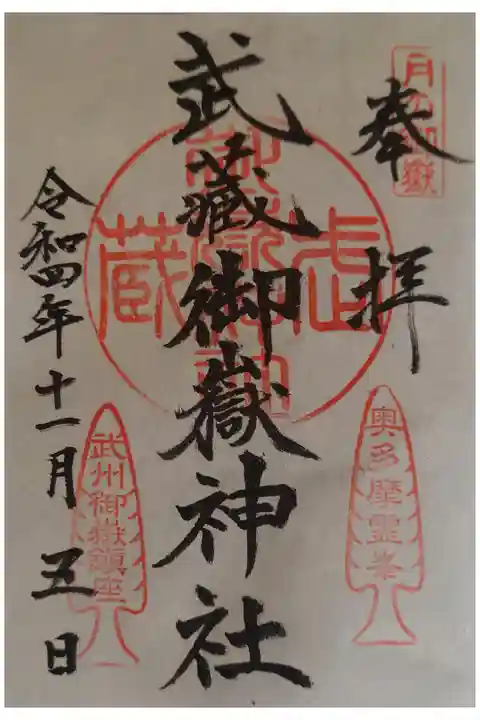 奉拝
武蔵御嶽神社
令和四年十一月五日
月の御嶽
奥多摩霊峯
武州御嶽鎮座